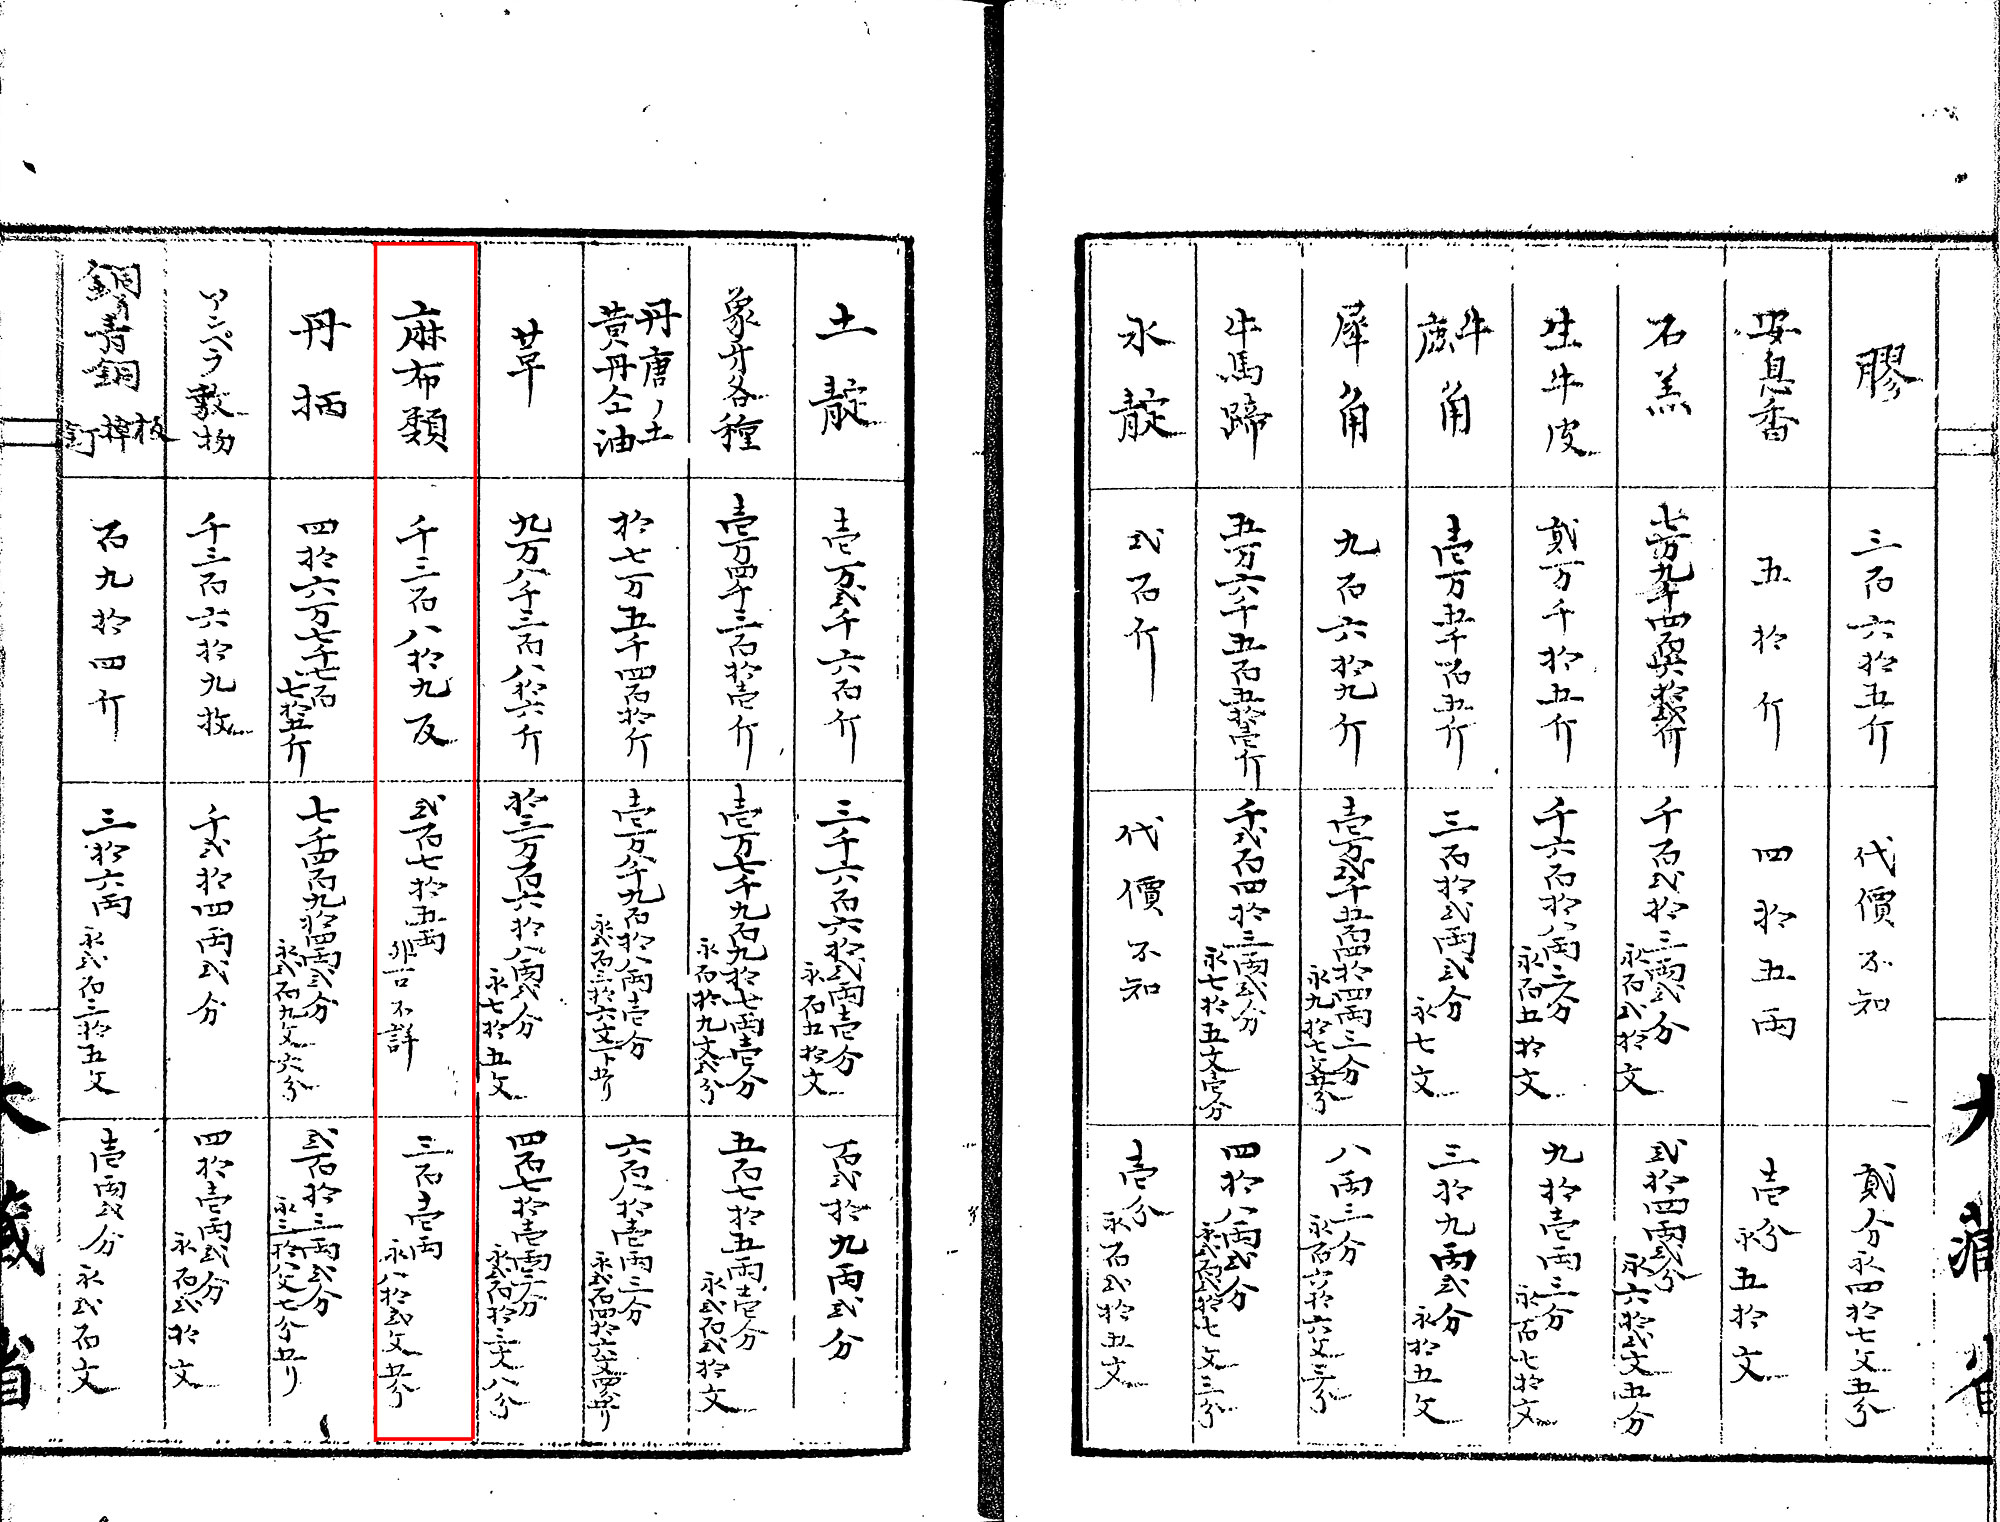 膠
三百六拾五斤
代價不知
貳分永四拾七文五分
安息香
五拾斤
四拾五両
壱分永五拾文
石羔
千百弐拾三両弐分
永百弐拾文
弐拾四両弐分
永六拾弐文五分
生牛皮
貳万千拾五斤
千六百拾八両三分
永百五拾文
九拾壱両三分
永百七拾文
牛
角
三百拾弐両弐分
永七文
三拾九両弐分
永拾五文
犀角
九百六拾九斤
壱万弐千五百四拾四両三分
永九拾七文五分
八両三分
永百六拾六文三分
牛馬蹄
五万六千五百五拾壱斤
千弐百四拾三両弐分
永七拾五文壱分
四拾八両弐分
永弐百弐拾七文三分
水靛
弐百斤
代價不知
壱分
永百弐拾五文
土靛
壱万弐千六百斤
三千六百六拾弐両壱分
永百五拾文
百弐拾九両弐分
象牙各種
壱万四千三百拾壱斤
壱万七千九百九拾七両壱分
永百拾九文弐分
五百七拾五両壱分
永弐百弐拾文
丹唐ノ土
黄丹仝油
拾七万五千四百拾斤
壱万八千九百拾八両壱分
六百八拾壱両三分
甘草
九万八千三百八拾六斤
拾三万百六拾八両弐分
永七拾五文
四百七拾壱両三分
永弐百拾三文八分
麻布類
千三百八拾九反
弐百七拾五両
不詳
三百壱両
永八拾弐文五分
丹
四拾六万七千七百
七拾五斤
七千四百九拾四両弐分
永弐百九文六分
弐百拾三両弐分
永三拾八文七分五リ
アンペラ敷物
千三百六拾九枚
千弐拾四両弐分
四拾壱両弐分
永百弐拾文
銅青銅
板棹釘
百九拾四斤
三拾六両
永弐百三拾五文
壱両弐分
永弐百文
大蔵省